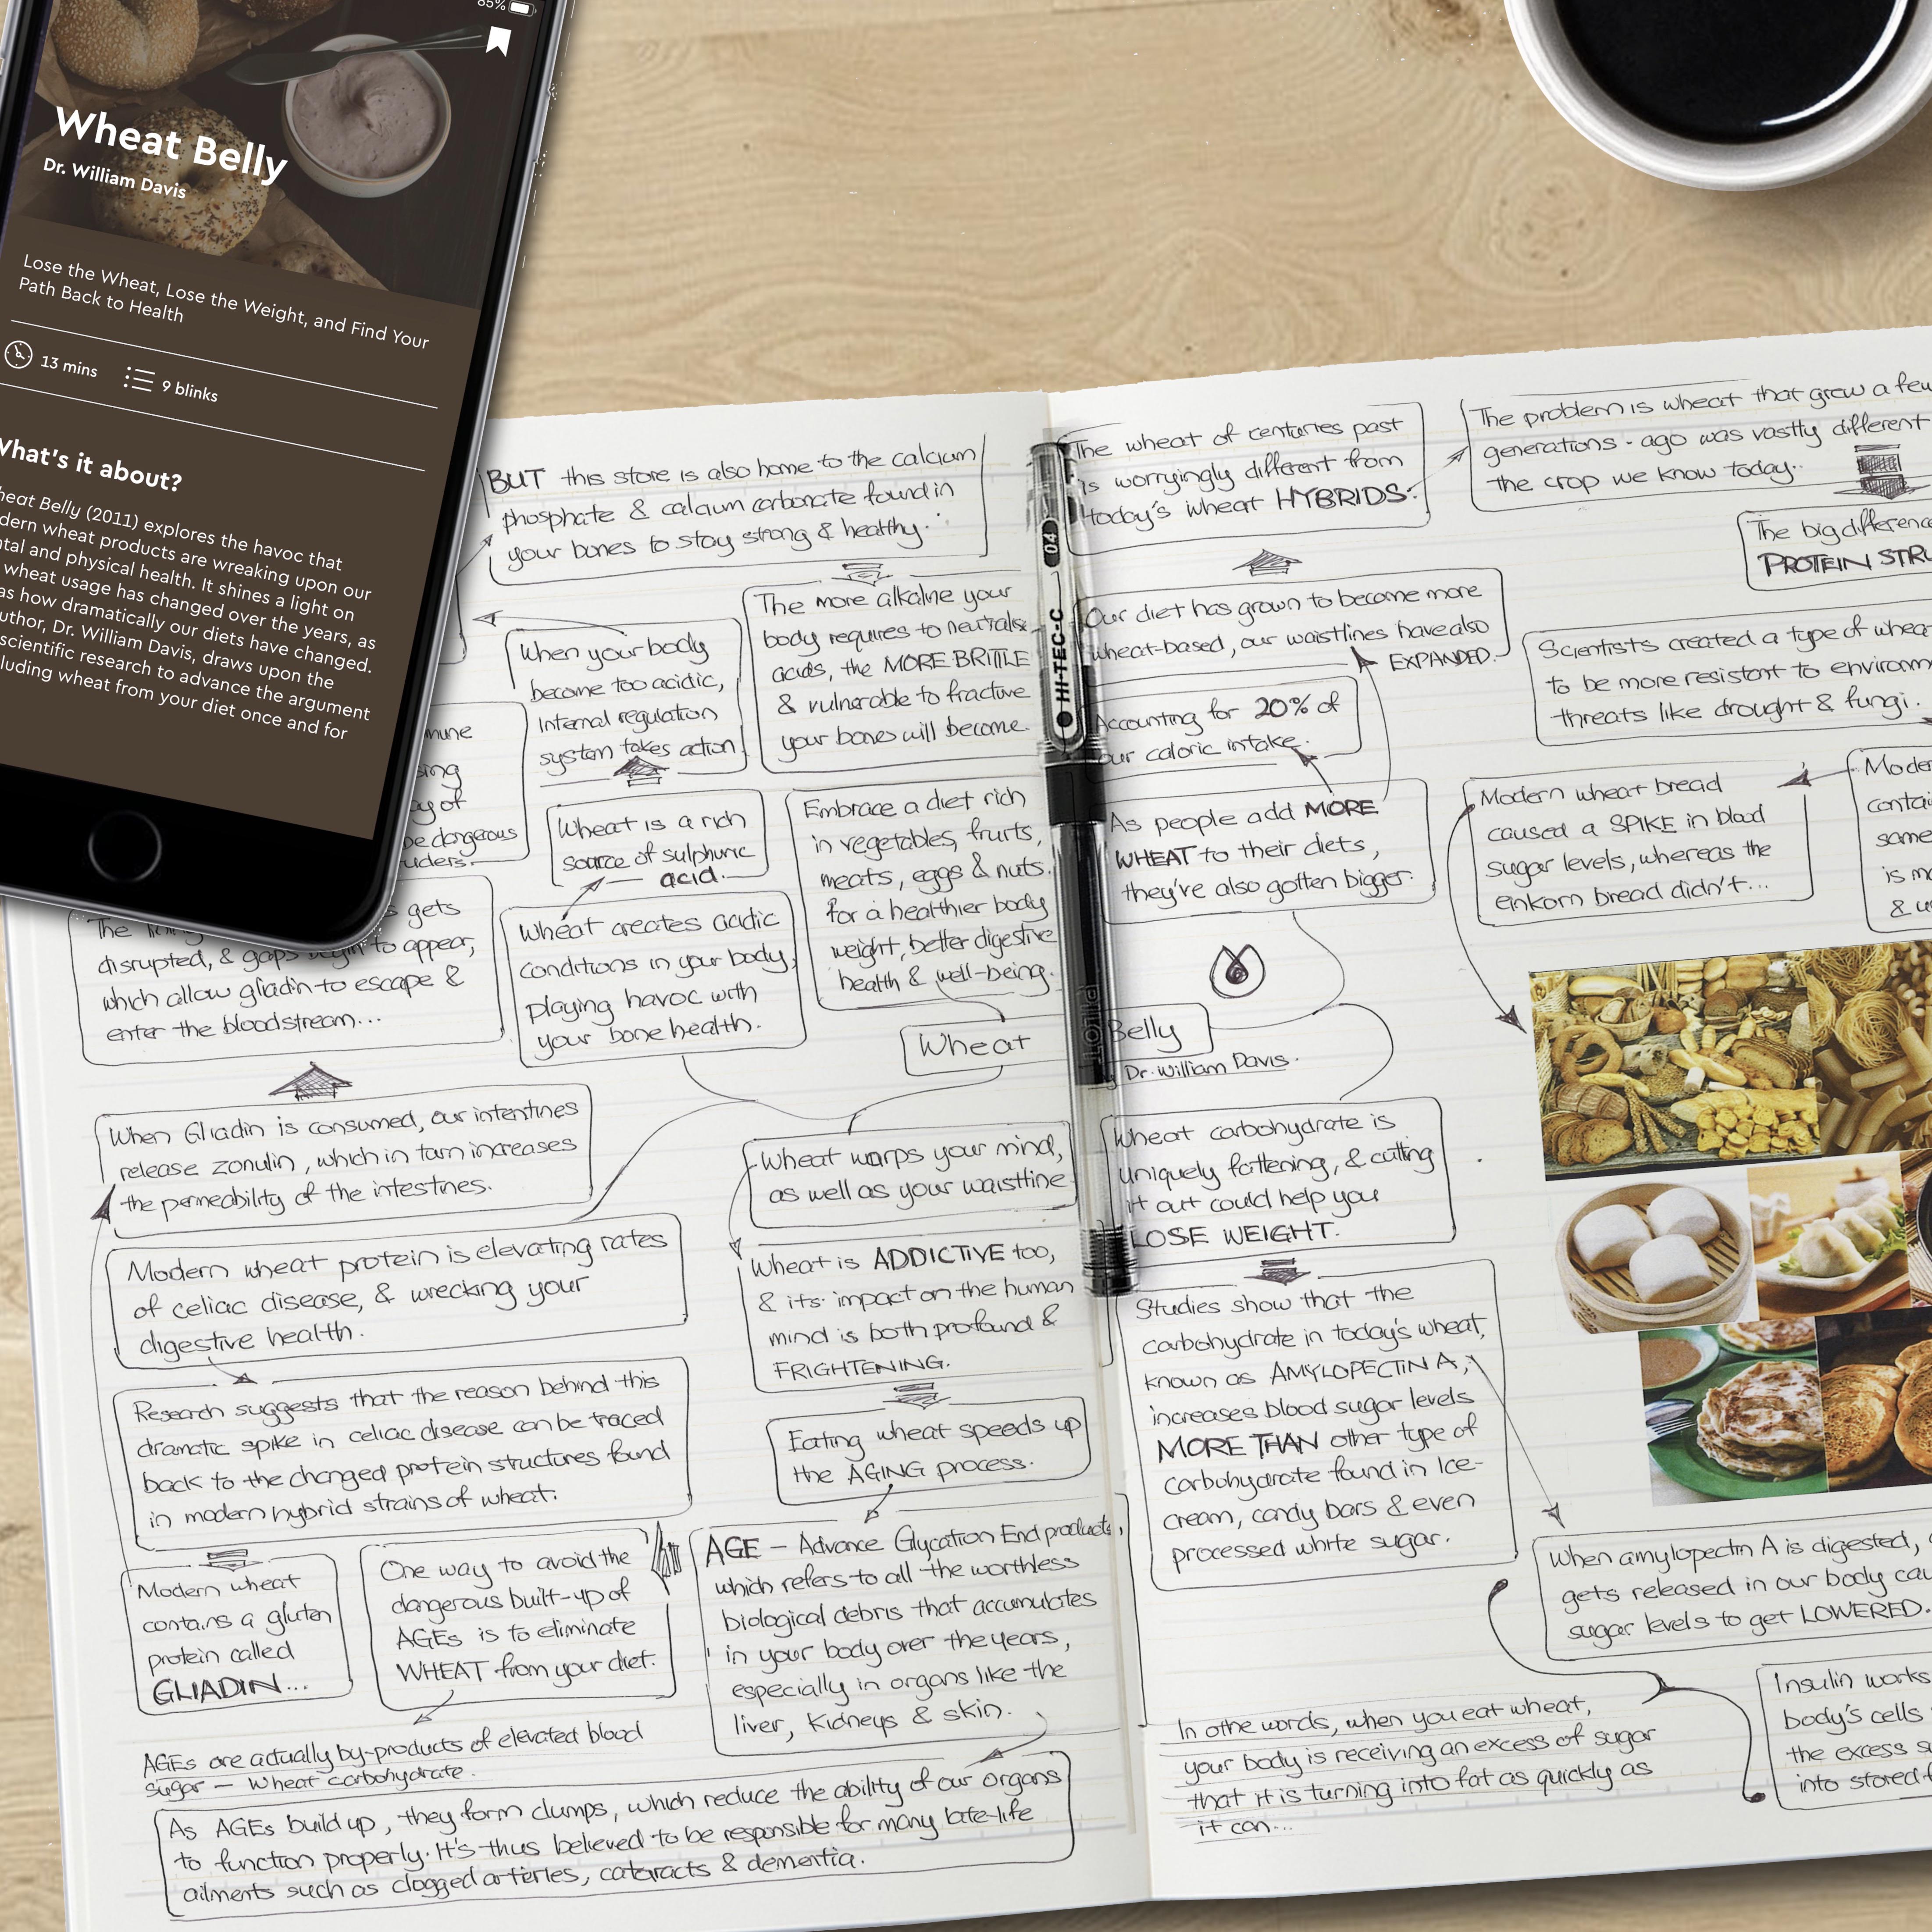 85%
Wheat Belly
Dr. William Davis
Lose the Wheat, Lose the Weight, and Find Your
Path Back to Health
13 mins
9 blinks
What's it about?
heat Belly (2011) explores the havoc that
dern wheat products are wreaking upon our
ntal and physical health. It shines a light on
wheat usage has changed over the years, as
as how dramatically our diets have changed.
uthor, Dr. William Davis, draws upon the
scientific research to advance the argument
luding wheat from your diet once and for
BUT this store is also home to the calcium
phosphate & calcium carbonate found in
your bones to stay strong & healthy.
The more alkaline your
body requires to neutralise
acids, the MORE BRITTLE
& vulnerable to fractive
your bones will become.
When your body
become too acidic,
Internal regulation
system takes action
Wheat is a rich
source of sulphuric
acid.
Wheat creates acidic
conditions in your body,
playing havoc with
your bone health.
Embrace a diet rich
in vegetables, fruits,
meats, eggs & nuts.
for a healthier body
weight, better digestive
health & well-being.
mune
sing
ay of
be dangerous
uders.
The lining gets
disrupted, & gaps begin to appear,
which allow gliadin to escape &
enter the bloodstream...
When Gliadin is consumed, our intentines
release zonulin, which in turn increases
the permeability of the intestines.
Modern wheat protein is elevating rates
of celiac disease, & wrecking your
digestive health.
Research suggests that the reason behind this
dramatic spike in celiac disease can be traced
back to the changed protein structures found
in modern hybrid strains of wheat.
Modern wheat
contains a gluten
protein called
GLIADIN...
One way to avoid the
dangerous built-up of
AGEs is to eliminate
WHEAT from your diet.
AGEs are actually by-products of elevated blood
sugar - Wheat carbohydrate.
As AGEs build up, they form clumps, which reduce the ability of our organs
to function properly. It's thus believed to be responsible for many late-life
ailments such as clogged arteries, cataracts & dementia.
Wheat Belly
Dr. William Davis.
Wheat warps your mind,
as well as your waistline
Wheat is ADDICTIVE too,
& its impact on the human
mind is both profound &
FRIGHTENING.
Eating wheat speeds up
the AGING process.
AGE - Advance Glycation End products,
which refers to all the worthless
biological debris that accumulates
in your body over the years,
especially in organs like the
liver, kidneys & skin.
04
HI-TEC-C
PILOT
The wheat of centuries past
is worryingly different from
today's wheat HYBRIDS.
Our diet has grown to become more
wheat-based, our waistlines have also
EXPANDED.
Accounting for 20% of
our caloric intake.
As people add MORE
WHEAT to their diets,
they've also gotten bigger.
Wheat carbohydrate is
uniquely fattening, & cutting
it out could help you
LOSE WEIGHT.
Studies show that the
carbohydrate in today's wheat,
known as AMYLOPECTIN A,
increases blood sugar levels
MORE THAN other type of
carbohydrate found in Ice-
cream, candy bars & even
processed white sugar.
In othe words, when you eat wheat,
your body is receiving an excess of sugar
that it is turning into fat as quickly as
it can...
The problem is wheat that grew a few
generations - ago was vastly different
the crop we know today.
The big difference
PROTEIN STRU
Scientists created a type of wheat
to be more resistant to environm
threats like drought & fungi.
Modern wheat bread
caused a SPIKE in blood
sugar levels, whereas the
einkorn bread didn't...
Moder
contai
some
is mo
& u
When amylopectin A is digested,
gets released in our body cau
sugar levels to get LOWERED.
Insulin works
body's cells
the excess s
into stored f